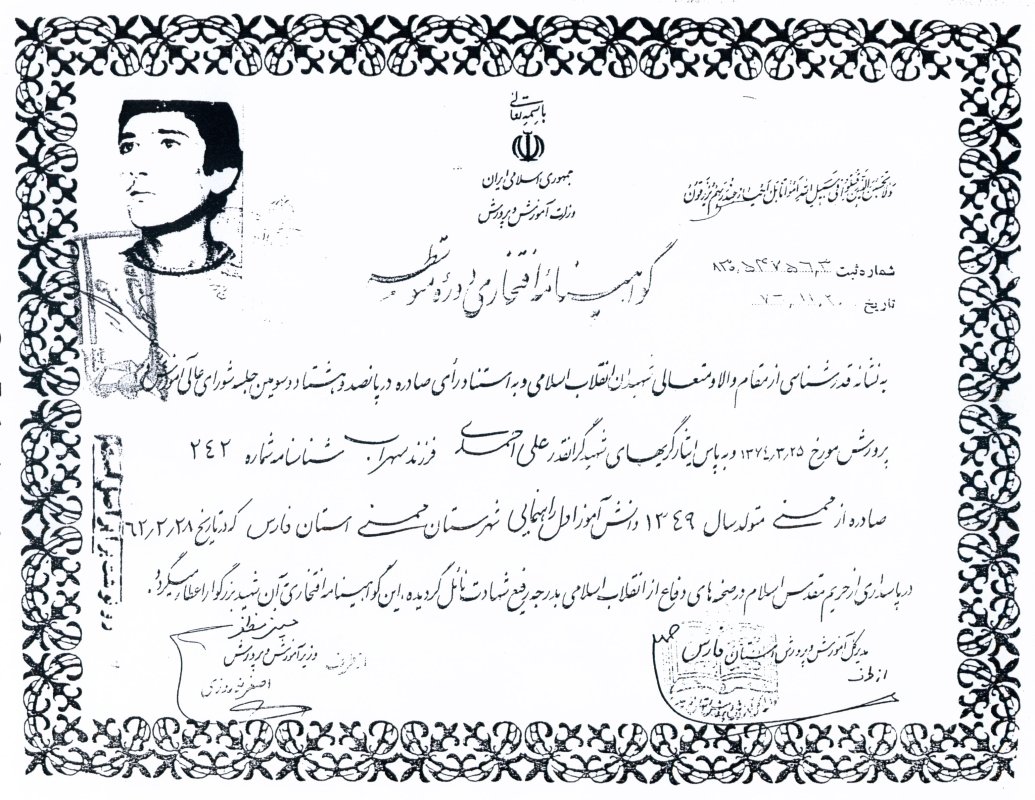 باسمه تعالی
جمهوری اسلامی ایران
وزارت آموزش و پرورش
ولا تحسبن الذین قتلوا فی سبیل الله امواتا بل احیاء عند ربهم یرزقون
گواهینامه افتخاری دوره متوسطه
شماره ثبت
تاریخ ۷۶٫۱۱٫۲۰
به نشانه قدرشناسی از مقام والا و متعالی شهیدان انقلاب اسلامی و به استناد رأی صادره در پانصد و هشتاد و سومین جلسه شورای عالی آموزش و
پرورش مورخ ۱۳۷۴٫۳٫۲۵ و به پاس ایثارگریهای شهید گرانقدر علی احمدی فرزند سهراب شناسنامه شماره ۲۴۲
صادره از ممسنی متولد سال ۱۳۴۹ دانش آموز اول راهنمایی شهرستان ممسنی استان فارس که در تاریخ ۶۲٫۲٫۲۸
در پاسداری از حریم مقدس اسلام در صحنه های دفاع از انقلاب اسلامی بدرجه رفیع شهادت نائل گردیده، این گواهینامه افتخاری آن شهید بزرگوار اعطا میگردد.
مدیرکل آموزش و پرورش استان فارس
از طرف
حسین مظفر
وزیر آموزش و پرورش
از طرف
رونوشت برابر اصل است